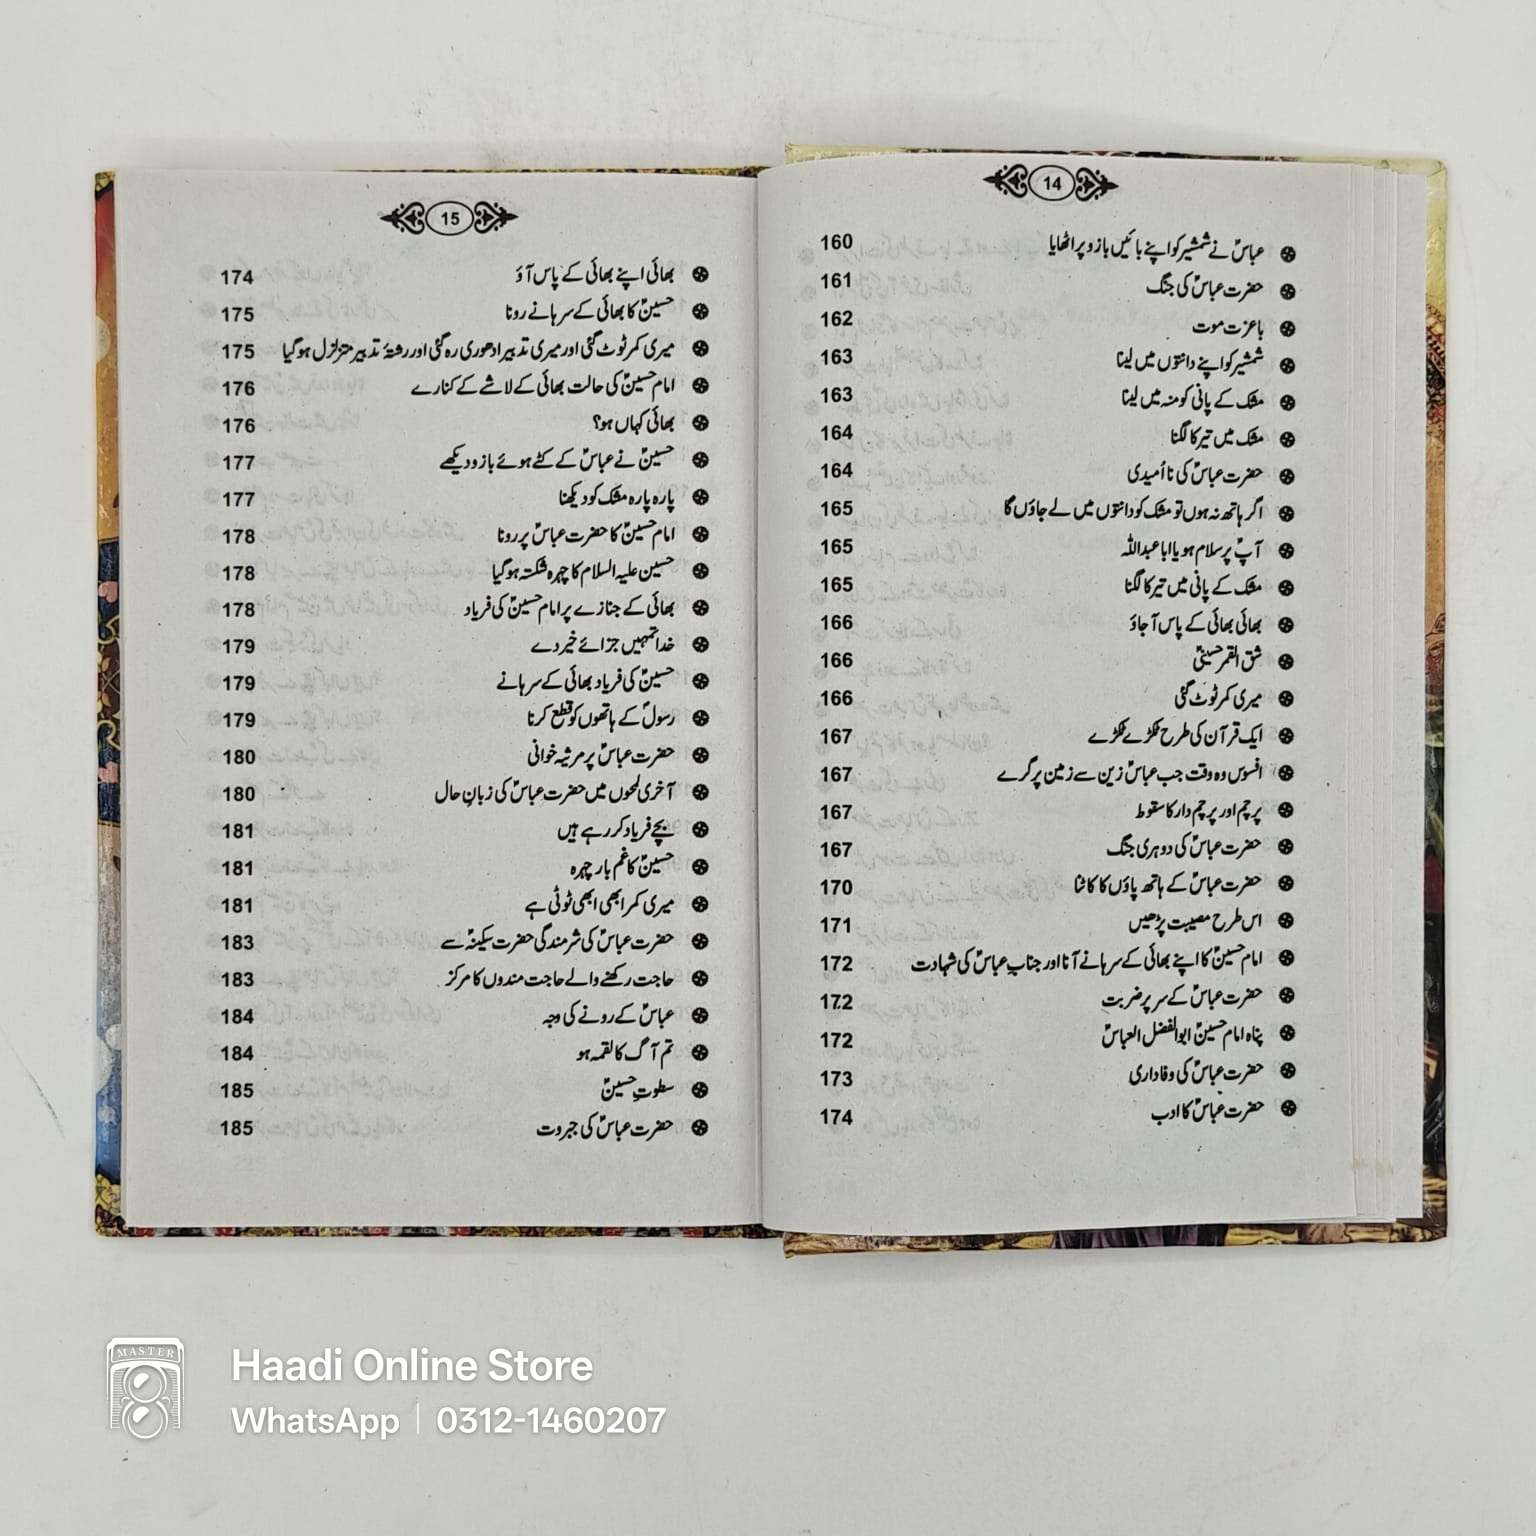 14
عباسؑ نے شمشیر کو اپنے بائیں بازو پر اٹھایا 160
حضرت عباسؑ کی جنگ 161
باعزت موت 162
شمشیر کو اپنے دانتوں میں لینا 163
مشک کے پانی کو منہ میں لینا 163
مشک میں تیر کا لگنا 164
حضرت عباسؑ کی ناامیدی 164
اگر ہاتھ نہ ہوں تو مشک کو دانتوں میں لے جاؤں گا 165
آپؑ پر سلام ہو یا ابا عبداللہ 165
مشک کے پانی میں تیر کا لگنا 165
بھائی بھائی کے پاس آ جاؤ 166
شق القمر حسینیؑ 166
میری کمر ٹوٹ گئی 166
ایک قرآن کی طرح ٹکڑے ٹکڑے 167
افسوس وہ وقت جب عباسؑ زین سے زمین پر گرے 167
پرچم اور پرچم دار کا سقوط 167
حضرت عباسؑ کی دوہری جنگ 167
حضرت عباسؑ کے ہاتھ پاؤں کا کاٹنا 170
اس طرح مصیبت پڑھیں 171
امام حسینؑ کا اپنے بھائی کے سرہانے آنا اور جناب عباسؑ کی شہادت 172
حضرت عباسؑ کے سر پر ضربت 172
پناہ امام حسینؑ ابوالفضل العباسؑ 172
حضرت عباسؑ کی وفاداری 173
حضرت عباسؑ کا ادب 174
15
بھائی اپنے بھائی کے پاس آؤ 174
حسینؑ کا بھائی کے سرہانے رونا 175
میری کمر ٹوٹ گئی اور میری تدبیر ادھوری رہ گئی اور رشتۂ تدبیر متزلزل ہو گیا 175
امام حسینؑ کی حالت بھائی کے لاشے کے کنارے 176
بھائی کہاں ہو؟ 176
حسینؑ نے عباسؑ کے کٹے ہوئے بازو دیکھے 177
پارہ پارہ مشک کو دیکھنا 177
امام حسینؑ کا حضرت عباسؑ پر رونا 178
حسین علیہ السلام کا چہرہ شکستہ ہو گیا 178
بھائی کے جنازے پر امام حسینؑ کی فریاد 178
خدا تمہیں جزائے خیر دے 179
حسینؑ کی فریاد بھائی کے سرہانے 179
رسولؐ کے ہاتھوں کو قطع کرنا 179
حضرت عباسؑ پر مرثیہ خوانی 180
آخری لمحوں میں حضرت عباسؑ کی زبانِ حال 180
بچے فریاد کر رہے ہیں 181
حسینؑ کا غم بار چہرہ 181
میری کمر ابھی ابھی ٹوٹی ہے 181
حضرت عباسؑ کی شرمندگی حضرت سکینہؑ سے 183
حاجت رکھنے والے حاجت مندوں کا مرکز 183
عباسؑ کے رونے کی وجہ 184
تم آگ کا لقمہ ہو 184
سطوتِ حسینؑ 185
حضرت عباسؑ کی جبروت 185
MASTER
Haadi Online Store
WhatsApp | 0312-1460207